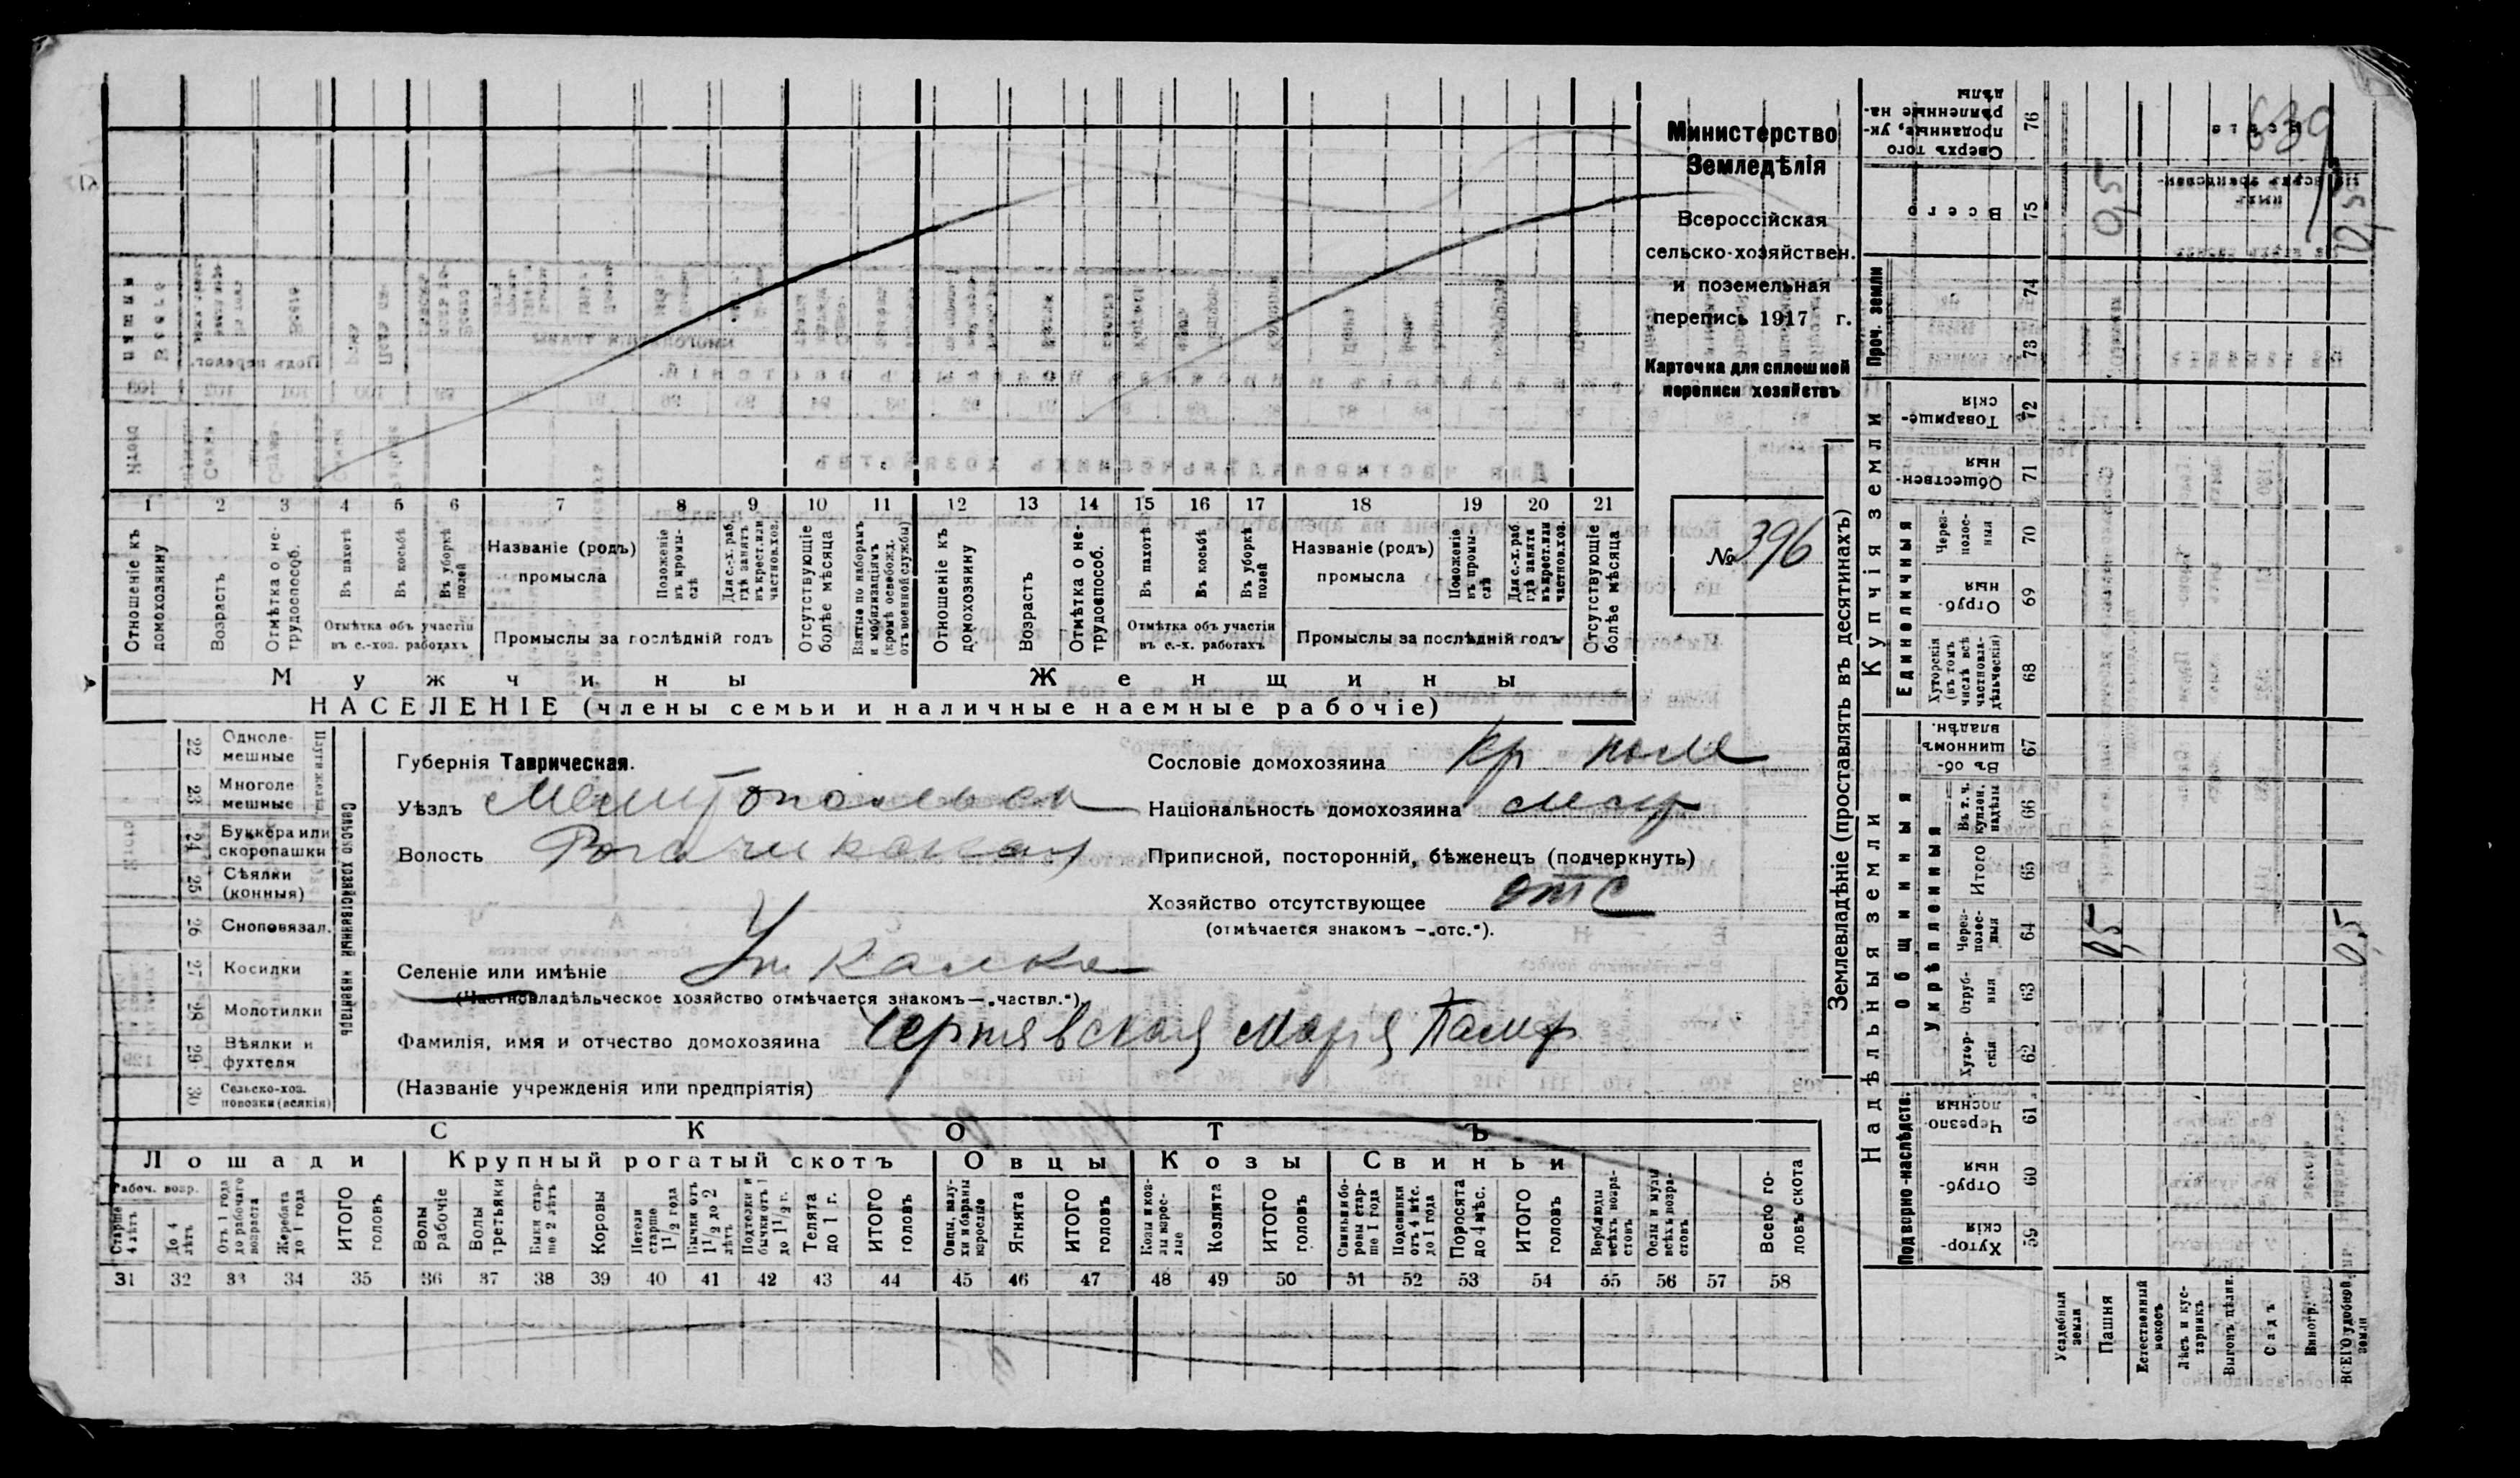 Министерство
Земледѣлія
Всероссійская
сельско-хозяйствен.
и поземельная
перепись 1917 г.
Карточка для сплошной
переписи хозяйствъ
№ 396
1 2 3 4 5 6 7 8 9 10 11 12 13 14 15 16 17 18 19 20 21
Отношеніе къ домохозяину
Возрастъ
Отмѣтка о нетрудоспособ.
Въ пахотѣ
Въ косьбѣ
Въ уборкѣ полей
Отмѣтка объ участіи въ с.-хоз. работахъ
Названіе (родъ) промысла
Положеніе въ промыслѣ
Для с.-х. раб. гдѣ занятъ въ крест. или частнов. хоз.
Промыслы за послѣдній годъ
Отсутствующіе болѣе мѣсяца
Взятые по наборамъ и мобилизаціямъ (кромѣ освобожд. отъ военной службы)
Отношеніе къ домохозяину
Возрастъ
Отмѣтка о нетрудоспособ.
Въ пахотѣ
Въ косьбѣ
Въ уборкѣ полей
Отмѣтка объ участіи въ с.-х. работахъ
Названіе (родъ) промысла
Положеніе въ промыслѣ
Для с.-х. раб. гдѣ занята въ крест. или частнов. хоз.
Промыслы за послѣдній годъ
Отсутствующіе болѣе мѣсяца
Мужчины Женщины
НАСЕЛЕНІЕ (члены семьи и наличные наемные рабочіе)
22 Однолемешные
23 Многолемешные
24 Буккера или скоропашки
25 Сѣялки (конныя)
26 Сноповязал.
27 Косилки
28 Молотилки
29 Вѣялки и фухтеля
30 Сельско-хоз. повозки (всякія)
Сельско хозяйственный инвентарь
Губернія Таврическая.
Уѣздъ Мелитопольск
Волость Рогачикская
Селеніе или имѣніе Ушкалка
(Частновладѣльческое хозяйство отмѣчается знакомъ—„частвл.“).
Фамилія, имя и отчество домохозяина Чернявская Марія Памф
(Названіе учрежденія или предпріятія)
Сословіе домохозяина Кр
Національность домохозяина
Приписной, посторонній, бѣженецъ (подчеркнуть)
Хозяйство отсутствующее отс
(отмѣчается знакомъ —„отс.“).
СКОТЪ
Лошади Крупный рогатый скотъ Овцы Козы Свиньи
Рабоч. возр.
Старше 4 лѣтъ
До 4 лѣтъ
Отъ 1 года до рабочаго возраста
Жеребята до 1 года
ИТОГО головъ
Волы рабочіе
Волы третьяки
Быки старше 2 лѣтъ
Коровы
Нетели старше 1½ года
Бычки отъ 1½ до 2 лѣтъ
Подтелки и бычки отъ 1 до 1½ г.
Телята до 1 г.
ИТОГО головъ
Овцы, валухи и бараны взрослые
Ягнята
ИТОГО головъ
Козы и козлы взрослые
Козлята
ИТОГО головъ
Свиньи и боровы старше 1 года
Подсвинки отъ 4 мѣс. до 1 года
Поросята до 4 мѣс.
ИТОГО головъ
Верблюды всѣхъ возрастовъ
Ослы и мулы всѣхъ возрастовъ
Всего головъ скота
31 32 33 34 35 36 37 38 39 40 41 42 43 44 45 46 47 48 49 50 51 52 53 54 55 56 57 58
Землевладѣніе (проставлять въ десятинахъ)
Надѣльныя земли
Купчія земли
Проч. земли
Подворно-наслѣдств.
Общинныя
Укрѣпленныя
Единоличныя
59 Хуторскія
60 Отрубныя
61 Черезполосныя
62 Хуторскія
63 Отрубныя
64 Черезполосныя
65 Итого
66 Въ т. ч. куплен. надѣлы
67 Въ общинномъ владѣн.
68 Хуторскія (въ томъ числѣ всѣ частновладѣльческія)
69 Отрубныя
70 Черезполосныя
71 Общественныя
72 Товарищескія
73
74
75 Всего
76 Сверхъ того проданные, укрѣпленные надѣлы
Усадебныя земли
Пашня
Естественный покосъ
Лѣсъ и кустарникъ
Выгонъ цѣлин.
Садъ
Виногр.
ВСЕГО удобной земли
0,5
0,5
0,5
639